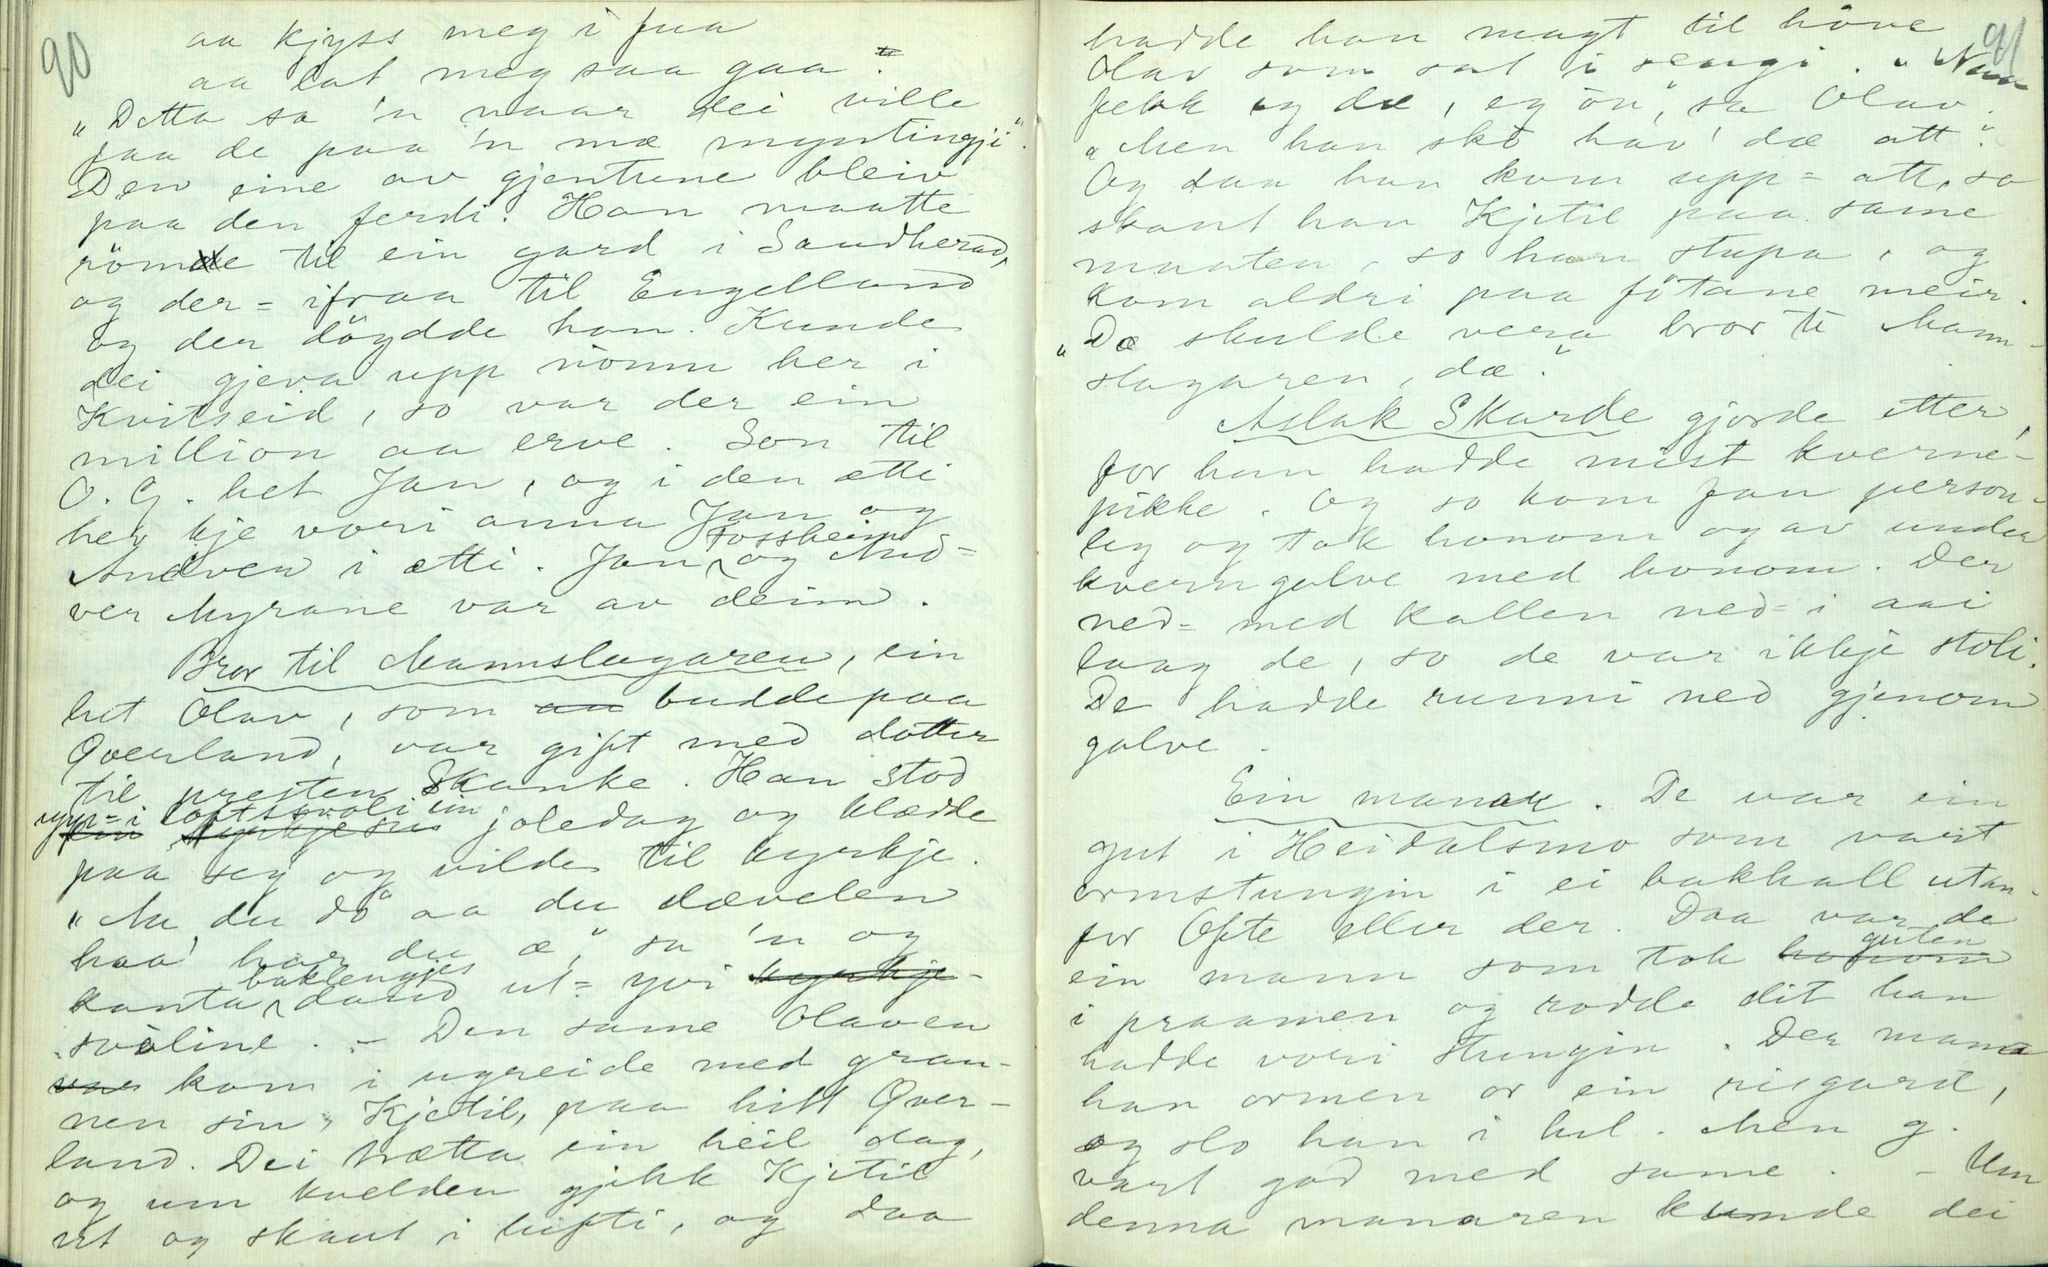 90
aa kjyss meg i fua
aa lat meg saa gaa."
"Detta sa 'n naar dei ville
faa de paa 'n mæ myntingji".
Den eine av gjentune bleiv
paa den ferdi. Han maatte
röme til ein gard i Saudherad,
og der-ifraa til Engelland
og der döydde han. Kunde
dei gjeva upp nömn her i
Kvitseid, so var der ein
million aa erve. Son til
O. G. het Jan, og i den ætti
hev kje vori anna Jan og
Andver i ætti. Jan Fossheim og And-
ver Myrane var av deim.
Bror til Mannslagaren, ein
het Olav, som budde paa
Qverland, var gift med dotter
til presten Skanke. Han stod
upp-i loftsvoli ein joledag og klædde
paa seg og vilde til kyrkje.
"Nu du dö aa du dævelen
haa' har du æ", sa 'n og
kanta baklengjes ut-yvi
svoline. - Den same Olaven
kom i ugreide med gran-
nen sin, Kjetil, paa hitt Qver-
land. Dei trætta ein heil dag,
og um kvelden gjekk Kjetil
ut og skaut i lufti, og daa
91
hadde han magt til höve
Olav som sat i sengi. "Naa
fekk eg dæ, eg ön", sa Olav.
"Men han sko hav' dæ att".
Og daa han kom upp-att, so
skaut han Kjetil paa same
maaten, so han stupa, og
kom aldri paa fötane meir.
"Dæ skulde vera bror te Mann-
slagaren, dæ".
Aslak Skarde gjorde etter,
for han hadde mist kverne-
pikke. Og so kom fan person-
leg og tok honom og av under
kverngolve med honom. Der
ned-med kallen ned-i aai
laag de, so de var ikkje stoli.
De hadde runni ned gjenom
golve.
Ein manar. De var ein
gut i Heidalsmo som vart
ormstungin i ei bakhall utan-
for Ofte eller der. Daa var de
ein mann som tok guten
i praamen og rodde dit han
hadde vori stungin. Der mana
han ormen or ein risgard,
og slo han i hel. Men g.
vart god med same. - Um
denna manaren kunde dei